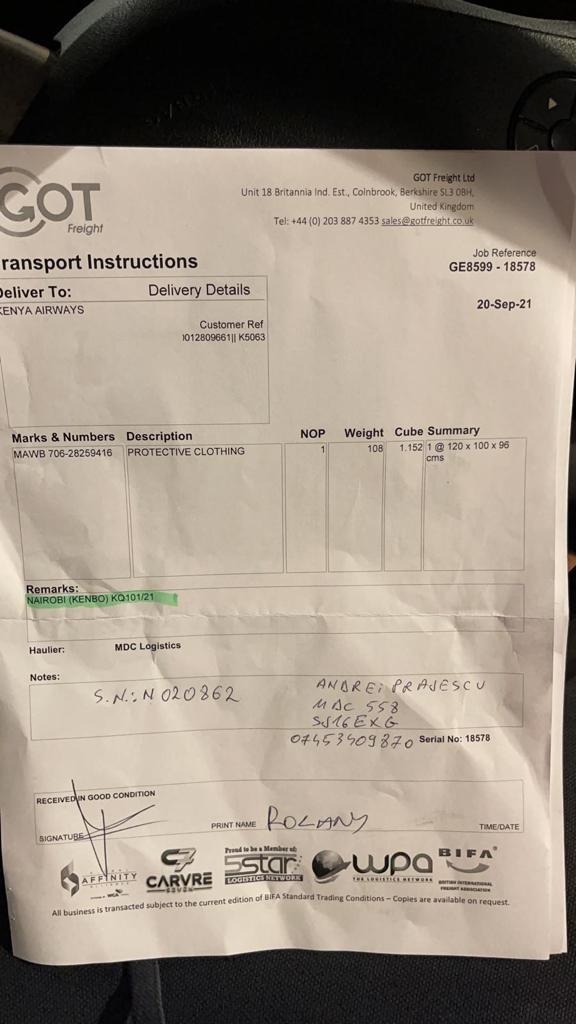 GOT
Freight
GOT Freight Ltd
Unit 18 Britannia Ind. Est., Colnbrook, Berkshire SL3 0BH,
United Kingdom
Tel: +44 (0) 203 887 4353 sales@gotfreight.co.uk
ransport Instructions
Job Reference
GE8599 - 18578
Deliver To: Delivery Details
KENYA AIRWAYS
20-Sep-21
Customer Ref
I012809661|| K5063
Marks & Numbers Description NOP Weight Cube Summary
MAWB 706-28259416 PROTECTIVE CLOTHING 1 108 1.152 1 @ 120 x 100 x 96
cms
Remarks:
NAIROBI (KENBO) KQ101/21
Haulier: MDC Logistics
Notes:
S.N.: N020862
ANDREI PRAJESCU
MDC 558
SJ16EXG
07453409870 Serial No: 18578
RECEIVED IN GOOD CONDITION
SIGNATURE PRINT NAME ROLANY TIME/DATE
AFFINITY
WCA
CARVRE
Proud to be a Member of:
5star
LOGISTICS NETWORK
wpa
THE LOGISTICS NETWORK
BIFA
BRITISH INTERNATIONAL
FREIGHT ASSOCIATION
All business is transacted subject to the current edition of BIFA Standard Trading Conditions – Copies are available on request.